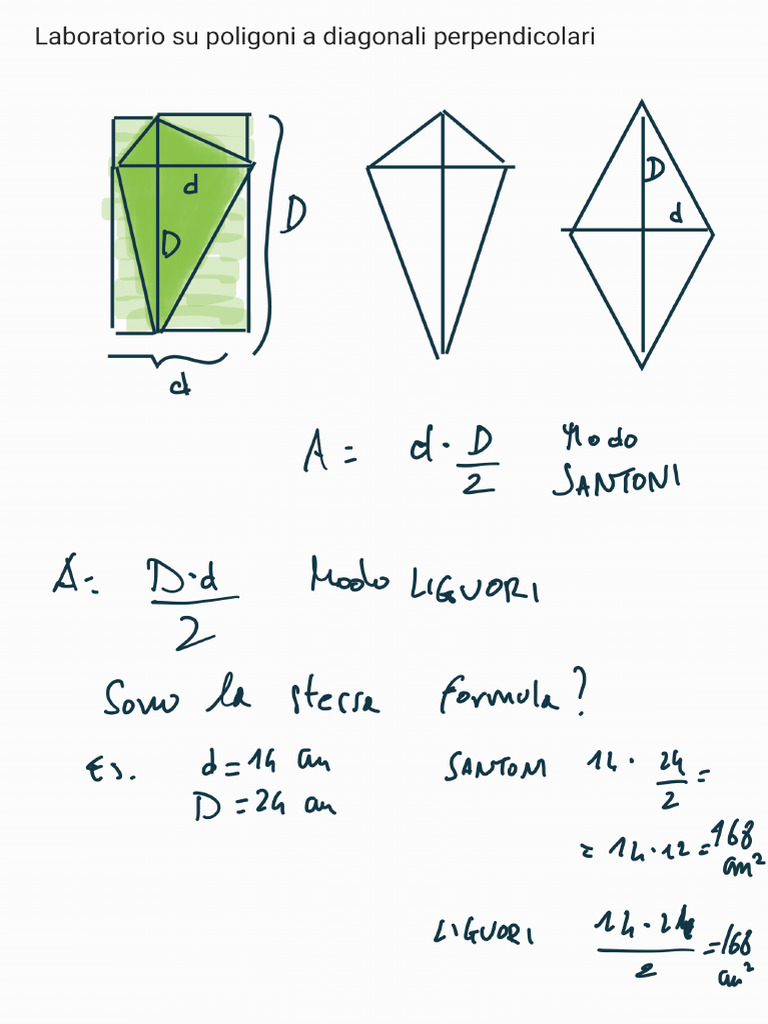 Laboratorio su poligoni a diagonali perpendicolari
d
D
D
d
D
d
A = d · D/2 Modo
SANTONI
A: D·d/2 Modo LIGUORI
Sono la stessa formula?
Es. d = 14 cm
D = 24 cm
SANTONI 14 · 24/2 =
= 14 · 12 = 168 cm²
LIGUORI 14 · 24/2 = 168 cm²